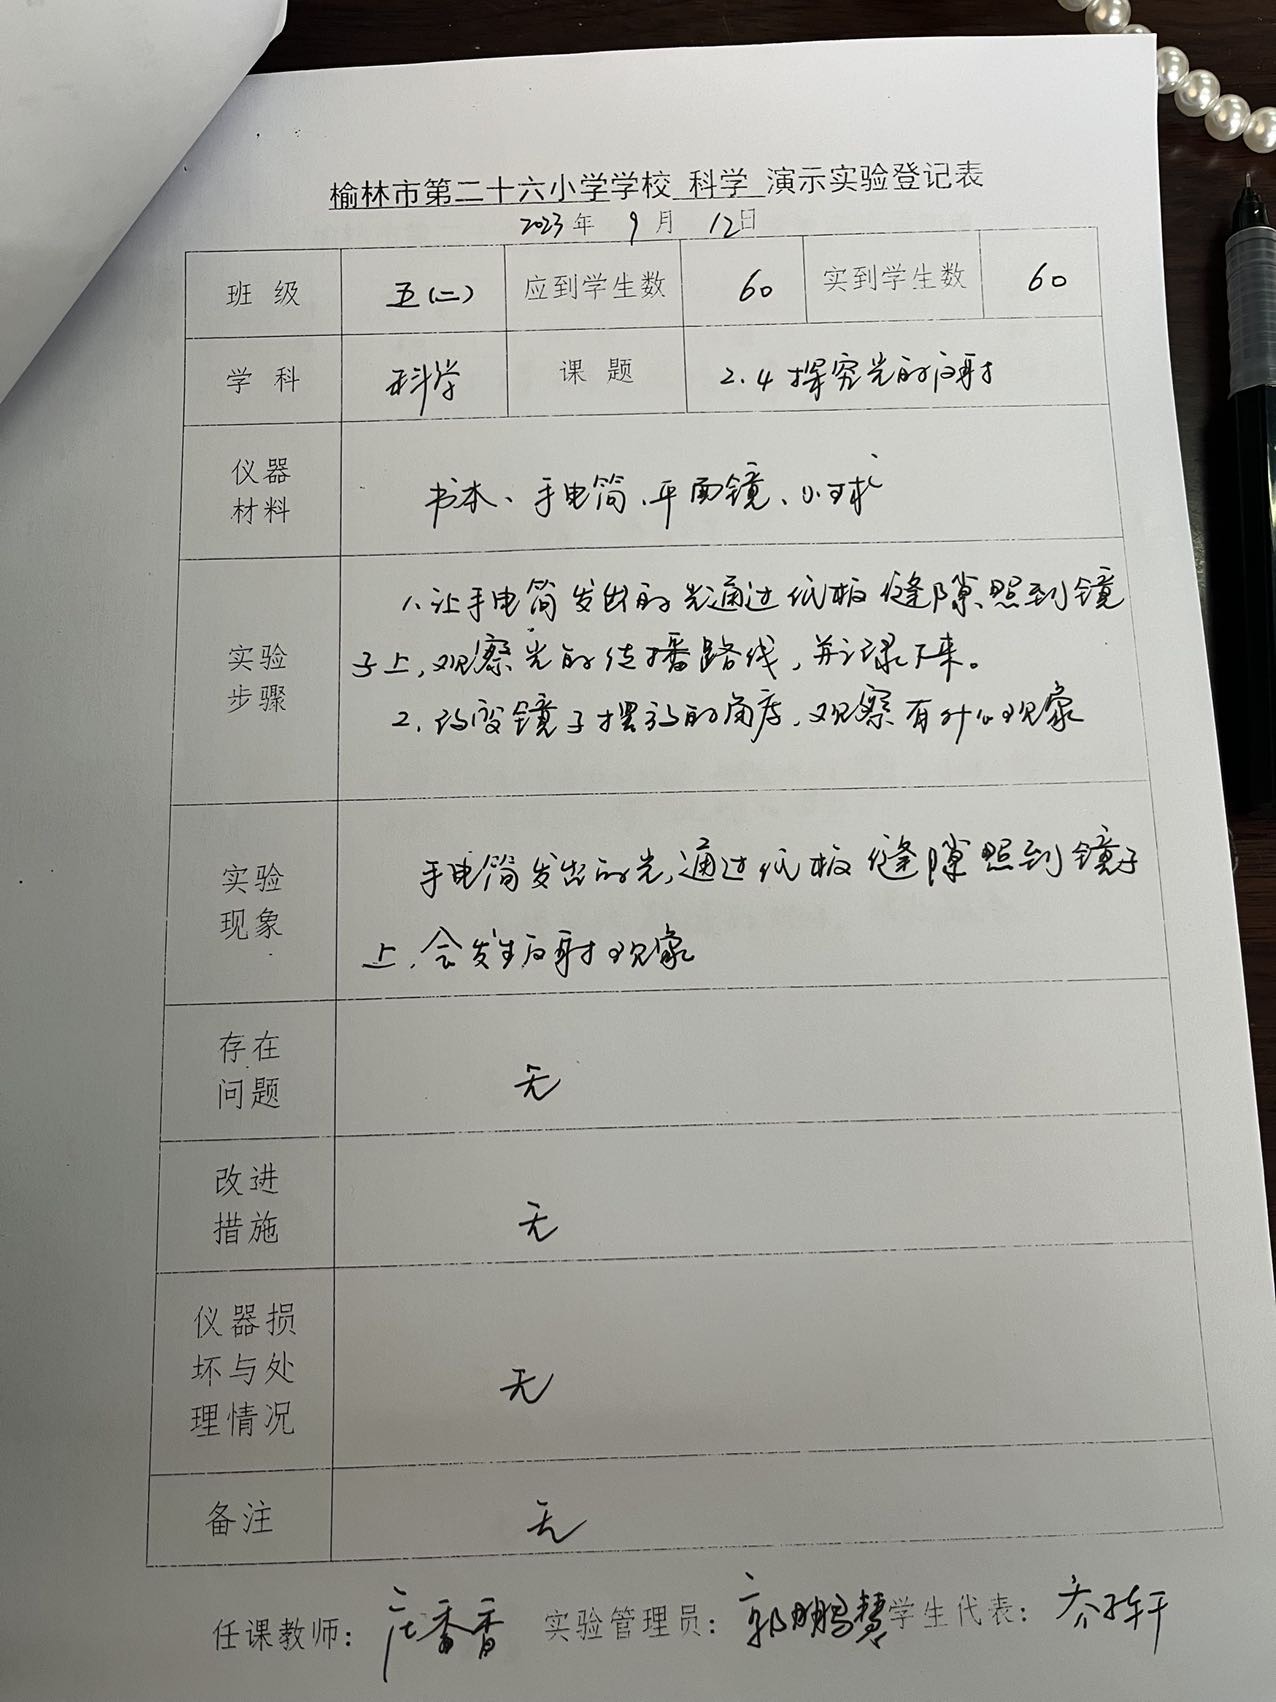 榆林市第二十六小学学校 科学 演示实验登记表
2023年 9月 12日
班级 五(二) 应到学生数 60 实到学生数 60
学科 科学 课题 2.4探究光的反射
仪器
材料
书本、手电筒、平面镜、小球
实验
步骤
1、让手电筒发出的光通过纸板缝隙照到镜
子上,观察光的传播路线,并记录下来。
2、改变镜子摆放的角度,观察有什么现象
实验
现象
手电筒发出的光,通过纸板缝隙照到镜子
上,会发生反射现象
存在
问题
无
改进
措施
无
仪器损
坏与处
理情况
无
备注 无
任课教师: 庄香香 实验管理员: 郭鹏慧 学生代表: 乔轩